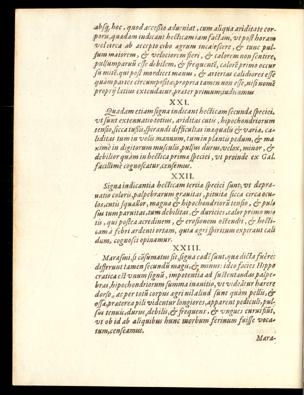 absq, hoc, quod accessio adveniat, cum aliqua ariditate cor-
poris, quædam indicant hecticam iam factam, ut post horam
vel circa ab accepto cibo ægrum incalescere, & tunc pul-
sum maiorem, & velociorem fieri, & calorem non sentire,
pulsum parvũ esse debilem, & frequentẽ,
XXI.
Quædam etiam signa indicant hecticam secundæ speciei,
ut sunt extenuatio totius, ariditas cutis, hypochondriorum
tensio, sicca tussis, spirandi difficultas inæqualis & varia, ca-
liditas tum in volis manuum, tum in plantis pedum, & ma-
xime in digitorum musculis, pulsus durus, velox, minor, &
debilior quàm in hectica primæ speciei, ut proinde ex Gal.
facillime cognoscatur, censemus.
XXII.
Signa indicantia hecticam tertiæ speciei sunt, ut depra-
uatio coloris, palpebrarum gravitas, pituita sicca circa ocu-
los, cutis squallor, magna & hypochondriorũ tensio, & pul-
sus tum parvitas, tum debilitas, & durities,
cum a febri ardenti ortam, quia ægri spiritum expirant cali-
dum, cognosci opinamur.
XXIII.
Marasmi, si cõsumatus sit, signa eadẽ sunt, quæ dicta fuêre:
differunt tamen secundum magis, & minus: ideo facies Hippo
cratica est vnum signũ, impotentia ad sustentandas palpe-
bras, hypochondriorum summa inanitio, ut videãtur hærere
dorso, ac per totũ corpus ægri nil aliud sunt quàm pellis, &
ossa, præterea pili videntur longiores, apparent pediculi, pul-
sus tenuis, durus, debilis, & frequens, & vngues curui sũt,
ut ob id ab aliquibus hunc morbum ferinum fuisse voca-
tum, censeamus.
Mara-